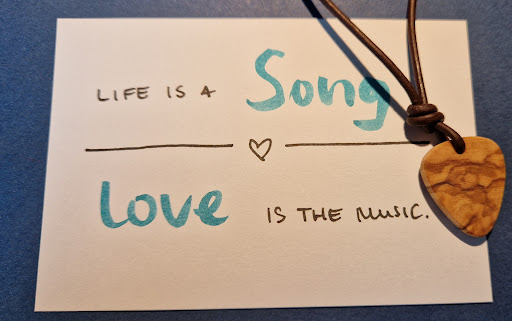 LIFE IS A Song
Love IS THE MUSIC.